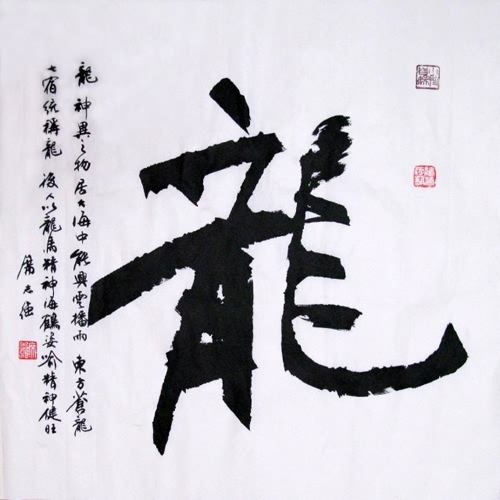 龍
龍 神異之物 居大海中 能興雲播雨 東方蒼龍
七宿統稱龍 後人以龍馬精神海鶴姿喻精神健旺